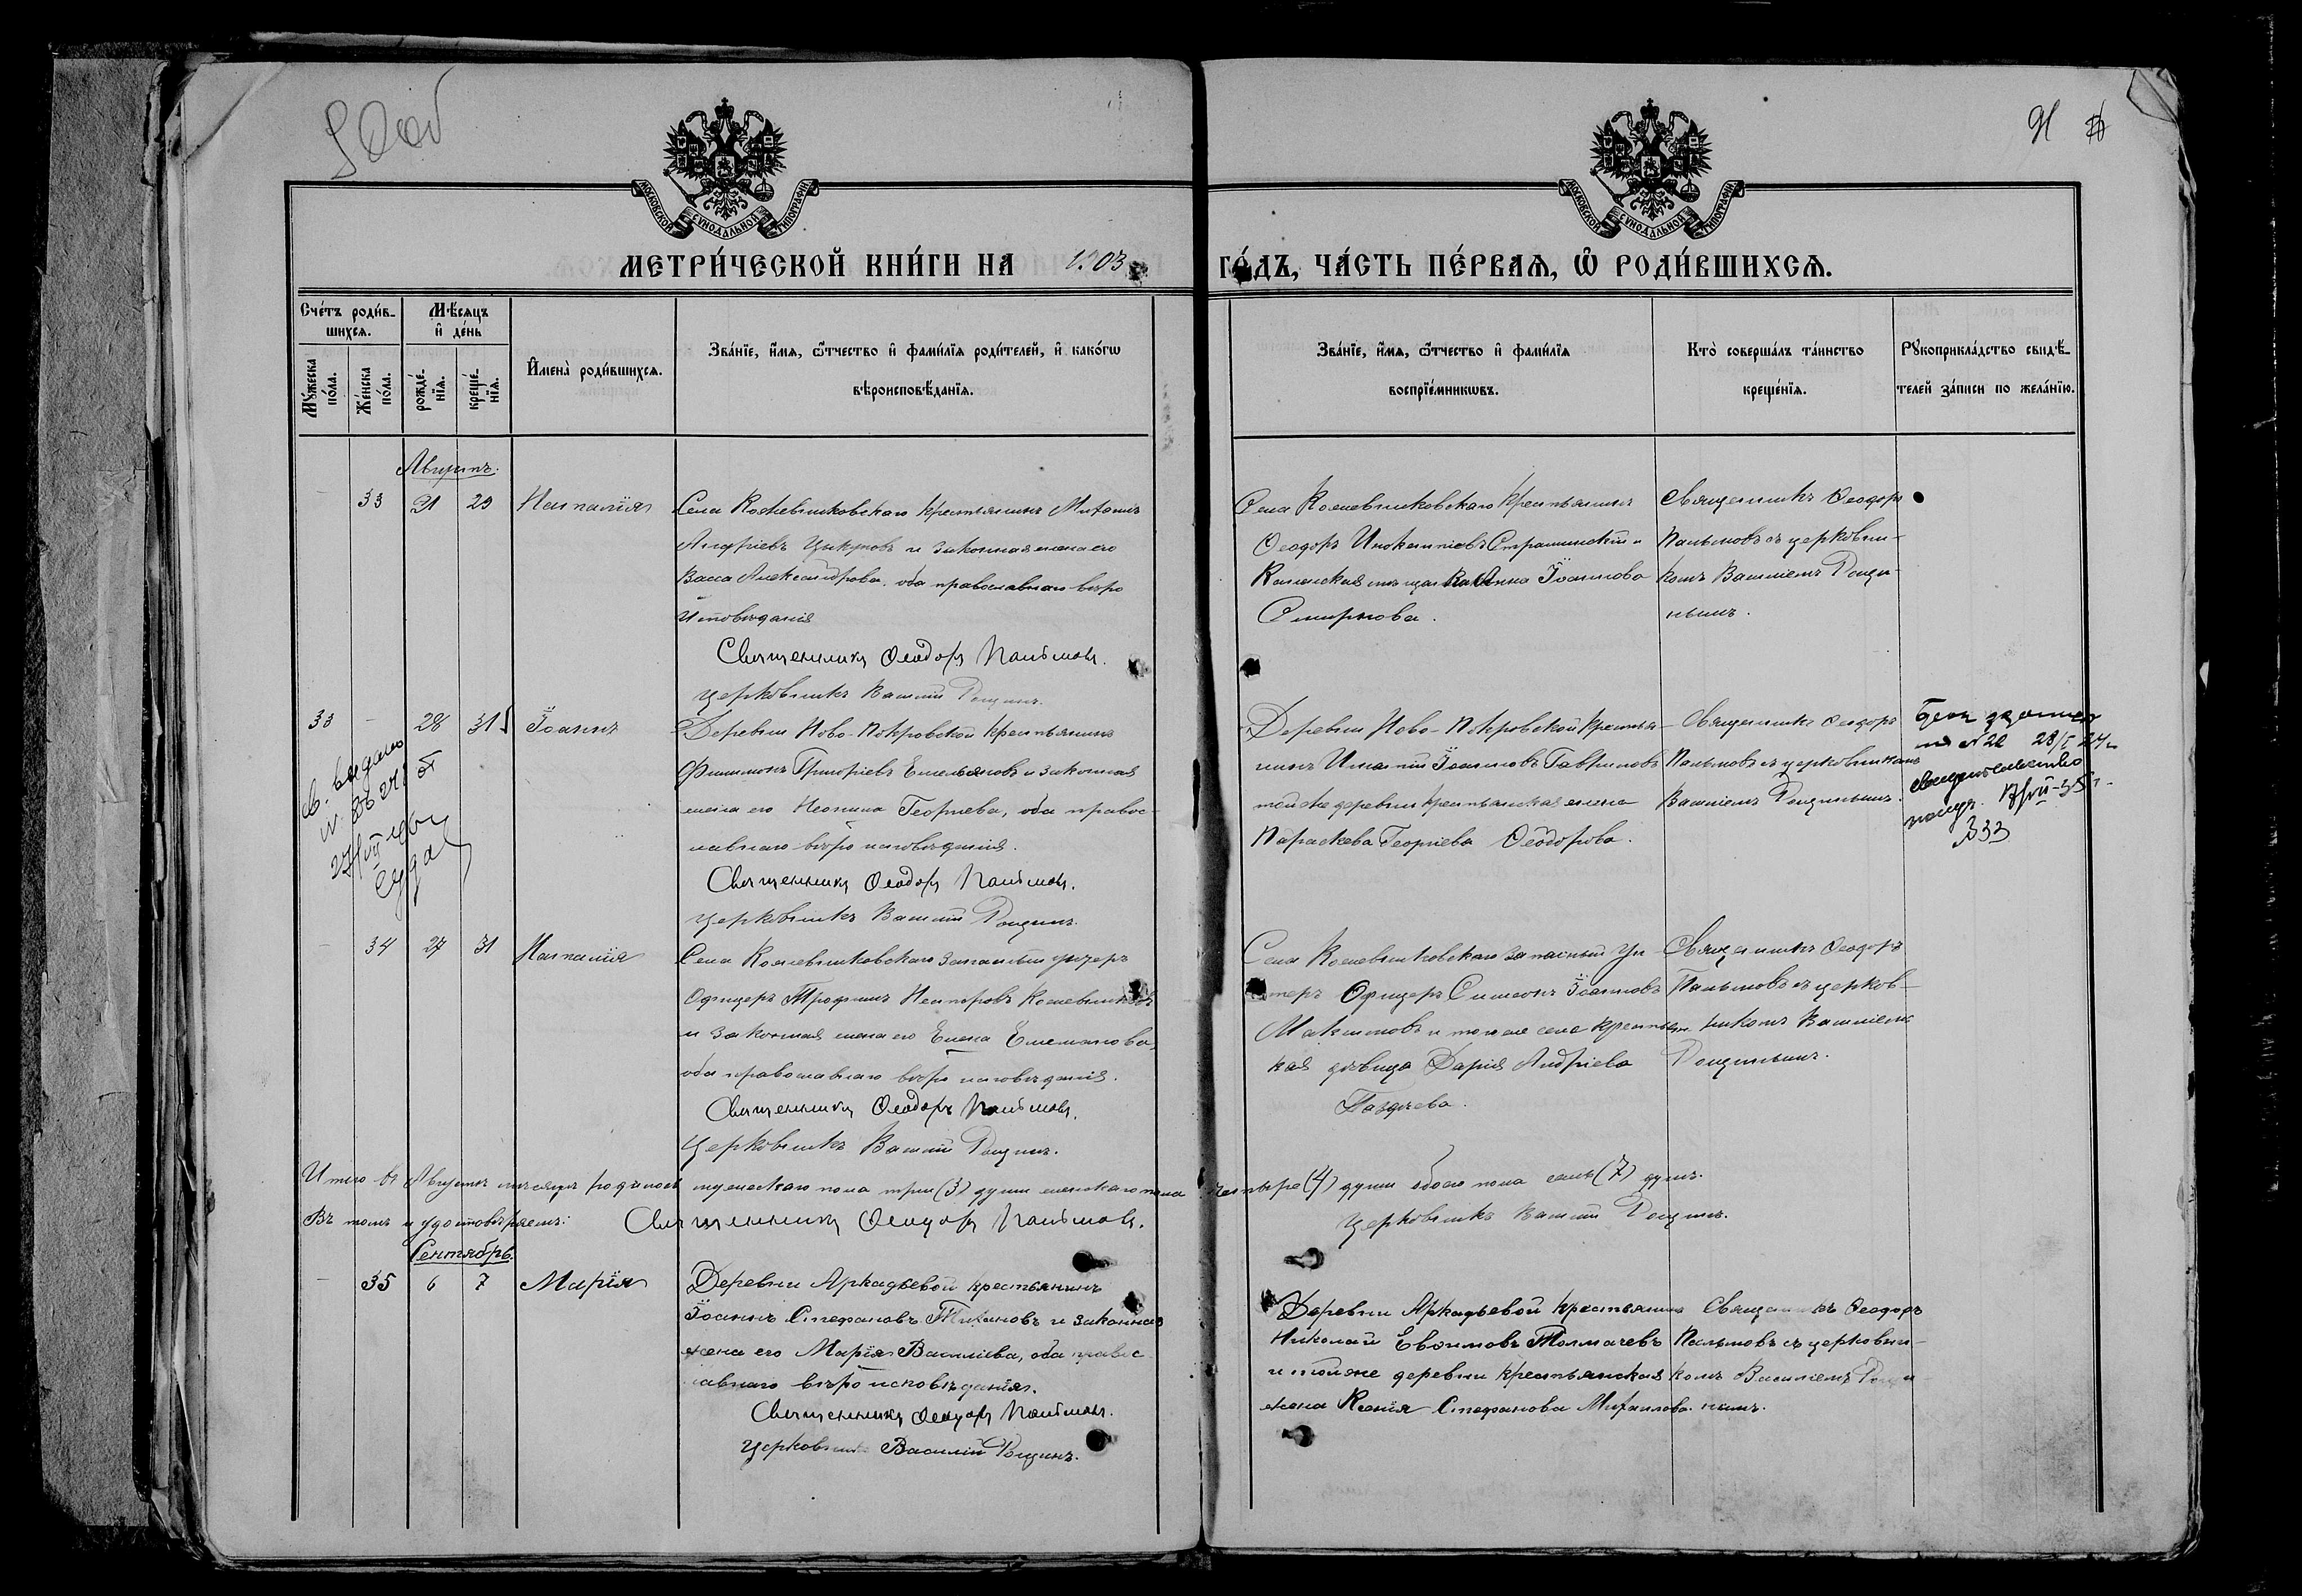 91
МОСКОВСКОЙ СѴНОДАЛЬНОЙ ТИПОГРАФІИ
МОСКОВСКОЙ СѴНОДАЛЬНОЙ ТИПОГРАФІИ
МЕТРИ́ЧЕСКОЙ КНИ́ГИ НА 1903
ГО́ДЪ, ЧА́СТЬ ПЕ́РВАѦ, Ѡ҆ РОДИ́ВШИХСѦ.
Сче́тъ роди́в-
шихсѧ.
Мꙋ́жеска по́ла.
Же́нска по́ла.
Мѣ́сѧцъ
и҆ де́нь
рожде́-
нїѧ.
креще́-
нїѧ.
И҆мена̀ роди́вшихсѧ.
Зва́нїе, и҆́мѧ, ѻ҆́тчество и҆ фами́лїѧ роди́телей, и҆ како́гѡ
вѣроисповѣ́данїѧ.
Зва́нїе, и҆́мѧ, ѻ҆́тчество и҆ фами́лїѧ
воспрїе́мникѡвъ.
Кто̀ соверша́лъ та́инство
креще́нїѧ.
Рꙋкоприкла́дство свидѣ́-
телей за́писи по жела́нїю.
Августъ.
33 21 29 Наталія
Села Кожевниковскаго крестьянинъ
Андріевъ Цыкуновъ и законная жена его
Васса Александрова, оба православнаго вѣро
исповѣданія
Священникъ Ѳеодоръ Пальмовъ.
Церковникъ Василій Рощинъ.
Села Кожевниковскаго крестьянинъ
Ѳеодоръ Инокентіевъ Страшинскій и
Анна Іоаннова
Смирнова.
Священникъ Ѳеодоръ
Пальмовъ съ церковни-
комъ Василіемъ Рощи-
нымъ.
33 - 28 31 Іоаннъ
Деревни Ново-Покровской крестьянинъ
Филимонъ Григоріевъ Емельяновъ и законная
жена его Неонила Георгіева, оба правос-
лавнаго вѣро исповѣданія.
Священникъ Ѳеодоръ Пальмовъ.
Церковникъ Василій Рощинъ.
Деревни Ново-Покровской крестья-
нинъ Игнатій Іоанновъ Гавриловъ
той же деревни крестьянская жена
Параскева Георгіева Ѳеодорова.
Священникъ Ѳеодоръ
Пальмовъ съ церковникомъ
Василіемъ Рощинымъ.
св. выдано
N 22 28/I 24 г
свидетельство
333
- 34 27 31 Наталія
Села Кожевниковскаго запасный унтеръ
Офицеръ Трофимъ Несторовъ Кожевниковъ
и законная жена его Елена Емельянова,
оба православнаго вѣро исповѣданія.
Священникъ Ѳеодоръ Пальмовъ.
Церковникъ Василій Рощинъ.
Села Кожевниковскаго запасный Ун-
теръ Офицеръ Симеонъ Іоанновъ
Максимовъ и того же села крестьянс
кая дѣвица Дарія Андріева
Священникъ Ѳеодоръ
Пальмовъ съ церков-
никомъ Василіемъ
Рощинымъ.
Итого въ Августѣ мѣсяцѣ родилось мужескаго пола три (3) души женскаго пола четыре (4) души обоего пола семь (7) душъ.
Въ томъ и удостовѣряемъ: Священникъ Ѳеодоръ Пальмовъ. Церковникъ Василій Рощинъ.
Сентябрь.
- 35 6 7 Марія
Деревни Аркадьевой крестьянинъ
Іоаннъ Стефановъ Тихановъ и законная
жена его Марія Василіева, оба правос-
лавнаго вѣро исповѣданія.
Священникъ Ѳеодоръ Пальмовъ.
Церковникъ Василій Рощинъ.
Деревни Аркадьевой крестьянинъ
Николай Евѳимовъ Толмачевъ
и той же деревни крестьянская
жена Ксенія Стефанова Михаилова.
Священникъ Ѳеодоръ
Пальмовъ съ церковни-
комъ Василіемъ Рощи
нымъ.